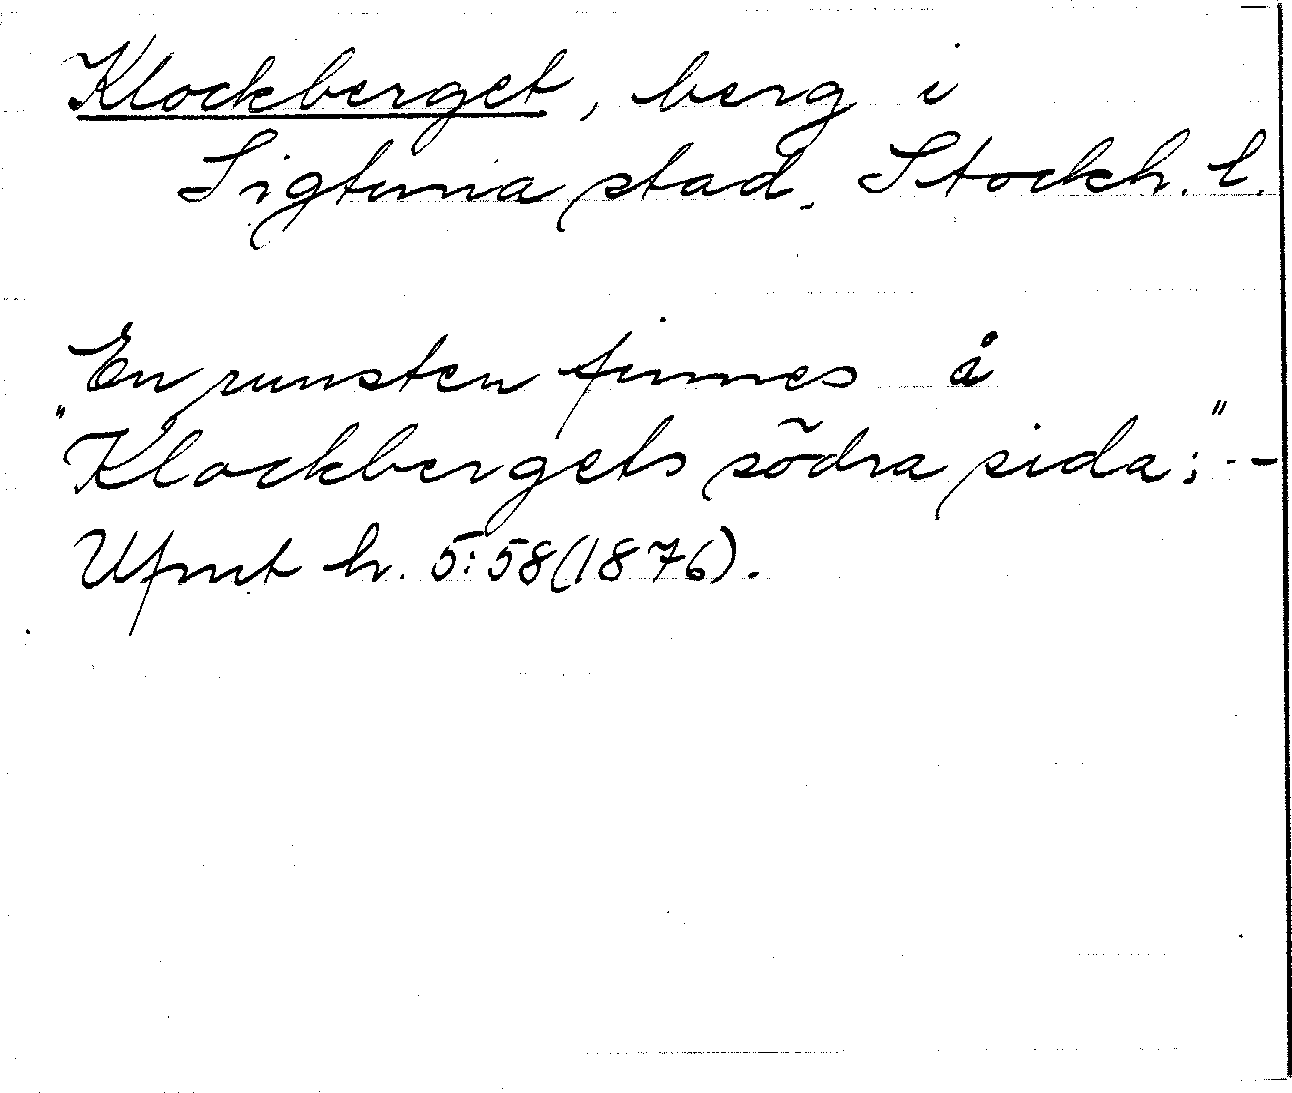 Klockberget, berg i
Sigtuna stad. Stockh. l.
En runsten finnes å
"Klockbergets södra sida;" -
Ufmt h. 5:58(1876).